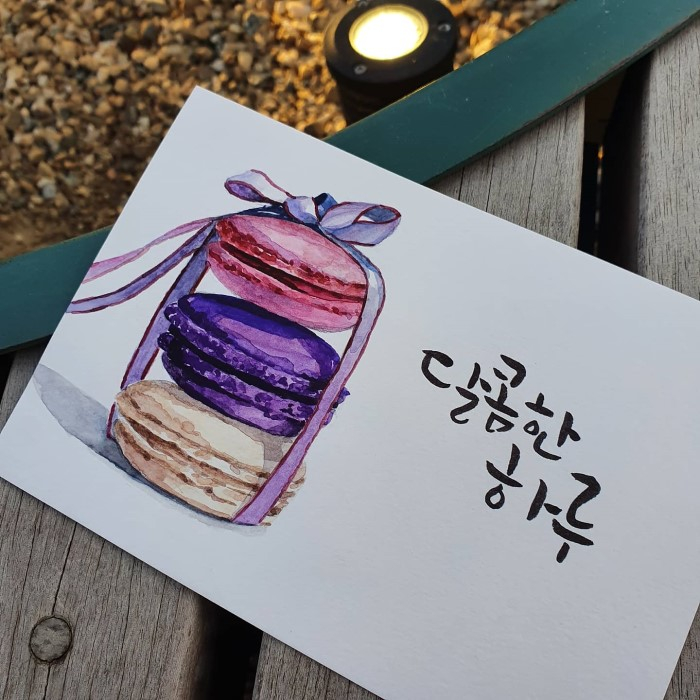 달콤한
하루